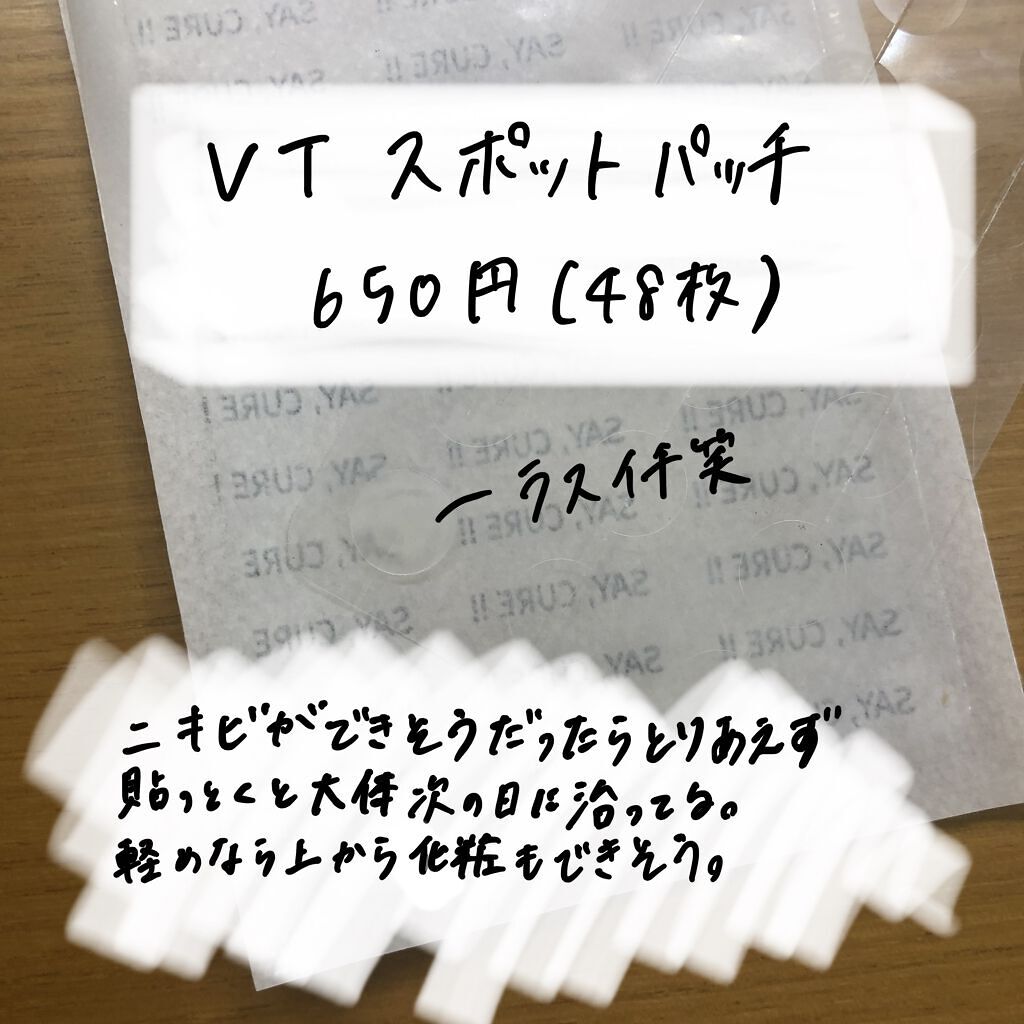 SAY, CURE !!
SAY, CURE !!
VT スポットパッチ
650円(48枚)
SAY, CURE !
SAY, CURE !!
SAY, CURE !!
ーラスイチ笑
SAY, CURE !
SAY, CURE !!
SAY, CURE !!
SAY, CURE
SAY, CURE !!
SAY, CURE !!
SAY, CURE
SAY, CURE !!
SAY,
SAY,
ニキビができそうだったらとりあえず
貼っとくと大体次の日に治ってる。
軽めなら上から化粧もできそう。